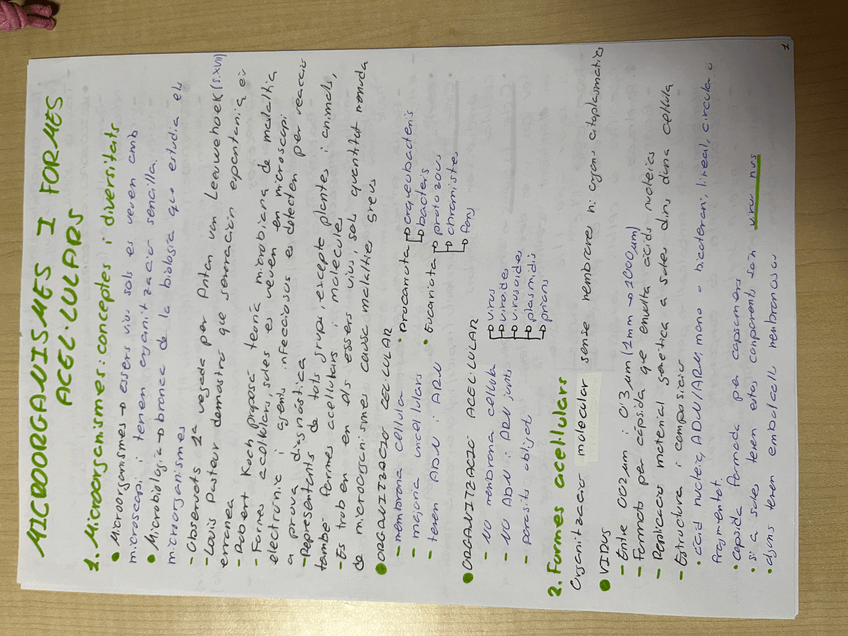 MICROORGANISMES I FORMES
ACEL·LULARS
1. Microorganismes: conceptes i diversitats
● Microorganismes → essers vius sols es veven amb
microscopi i tenen organització sencilla.
● Microbiologia → branca de la biologia que estudia els
microorganismes
- Observats 1ª vegada per Anton van Leeuwenoek (s.XVII)
- Louis Pasteur demostrá que generación espontania és
erronea
- Robert Koch proposá teoría microbiana de malaltia
- Formes acellulars, soles es veven en microscopi
electronic i agents infecciosos es detecten per reacció
a prova diagnóstica
- Representants de tots grups, excepte plantes i animals,
també formes acellulars i molecules
- Es troben en els essers vius, sols quantitat menuda
de microorganismes causa malalties greus
● ORGANITZACIÓ CEL·LULAR
- membrana cellula
- majoria unicellulars
- tenen ADN i ARN
• Procariota → arqueobacteris
→ bacteris
• Eucariota → protozous
→ chromistes
→ fons
● ORGANITZACIÓ ACEL·LULAR
- NO membrana cellula
- NO ADN i ARN junts
- parasits obligats
→ virus
→ viroides
→ virusoides
→ plasmidis
→ prions
2. Formes acellulars
Organització molecular sense membranes ni organs citoplasmatics
● VIRUS
- Entre 0'02 µm i 0'3 µm (1mm → 1000 µm)
- Formats per cápsida que envolta ácids nucleics
- Replicació material genética a soles dins d'una cellula
- Estructura i composició
• ácid nucleic, ADN/ARN, mono o bicatenari, lineal, circular i
fragmentat.
• Cápsida formada per capsómers
• Si a soles tenen estos components són virus nus
• alguns tenen embolcall membranós o
1